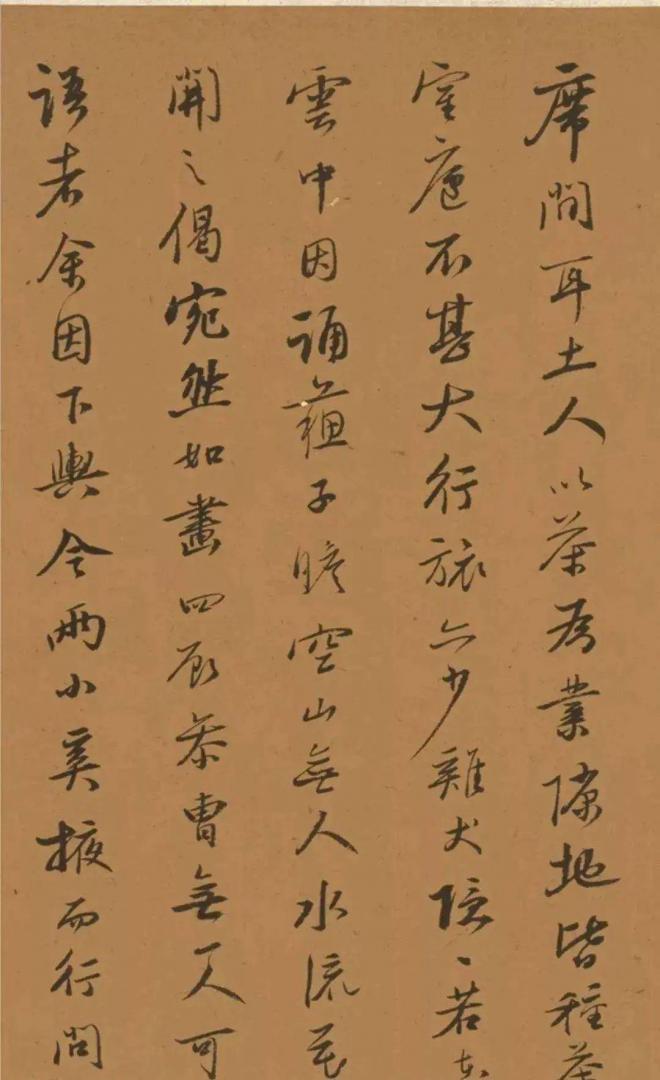 席間耳土人以茶為業隙地皆種茶
室廬不甚大行旅亦少雞犬隱〻若在
雲中因誦蘓子瞻空山無人水流花
開之偈宛然如畫四顧茶曹無一人可
語者余因下輿令兩小奚掖而行問